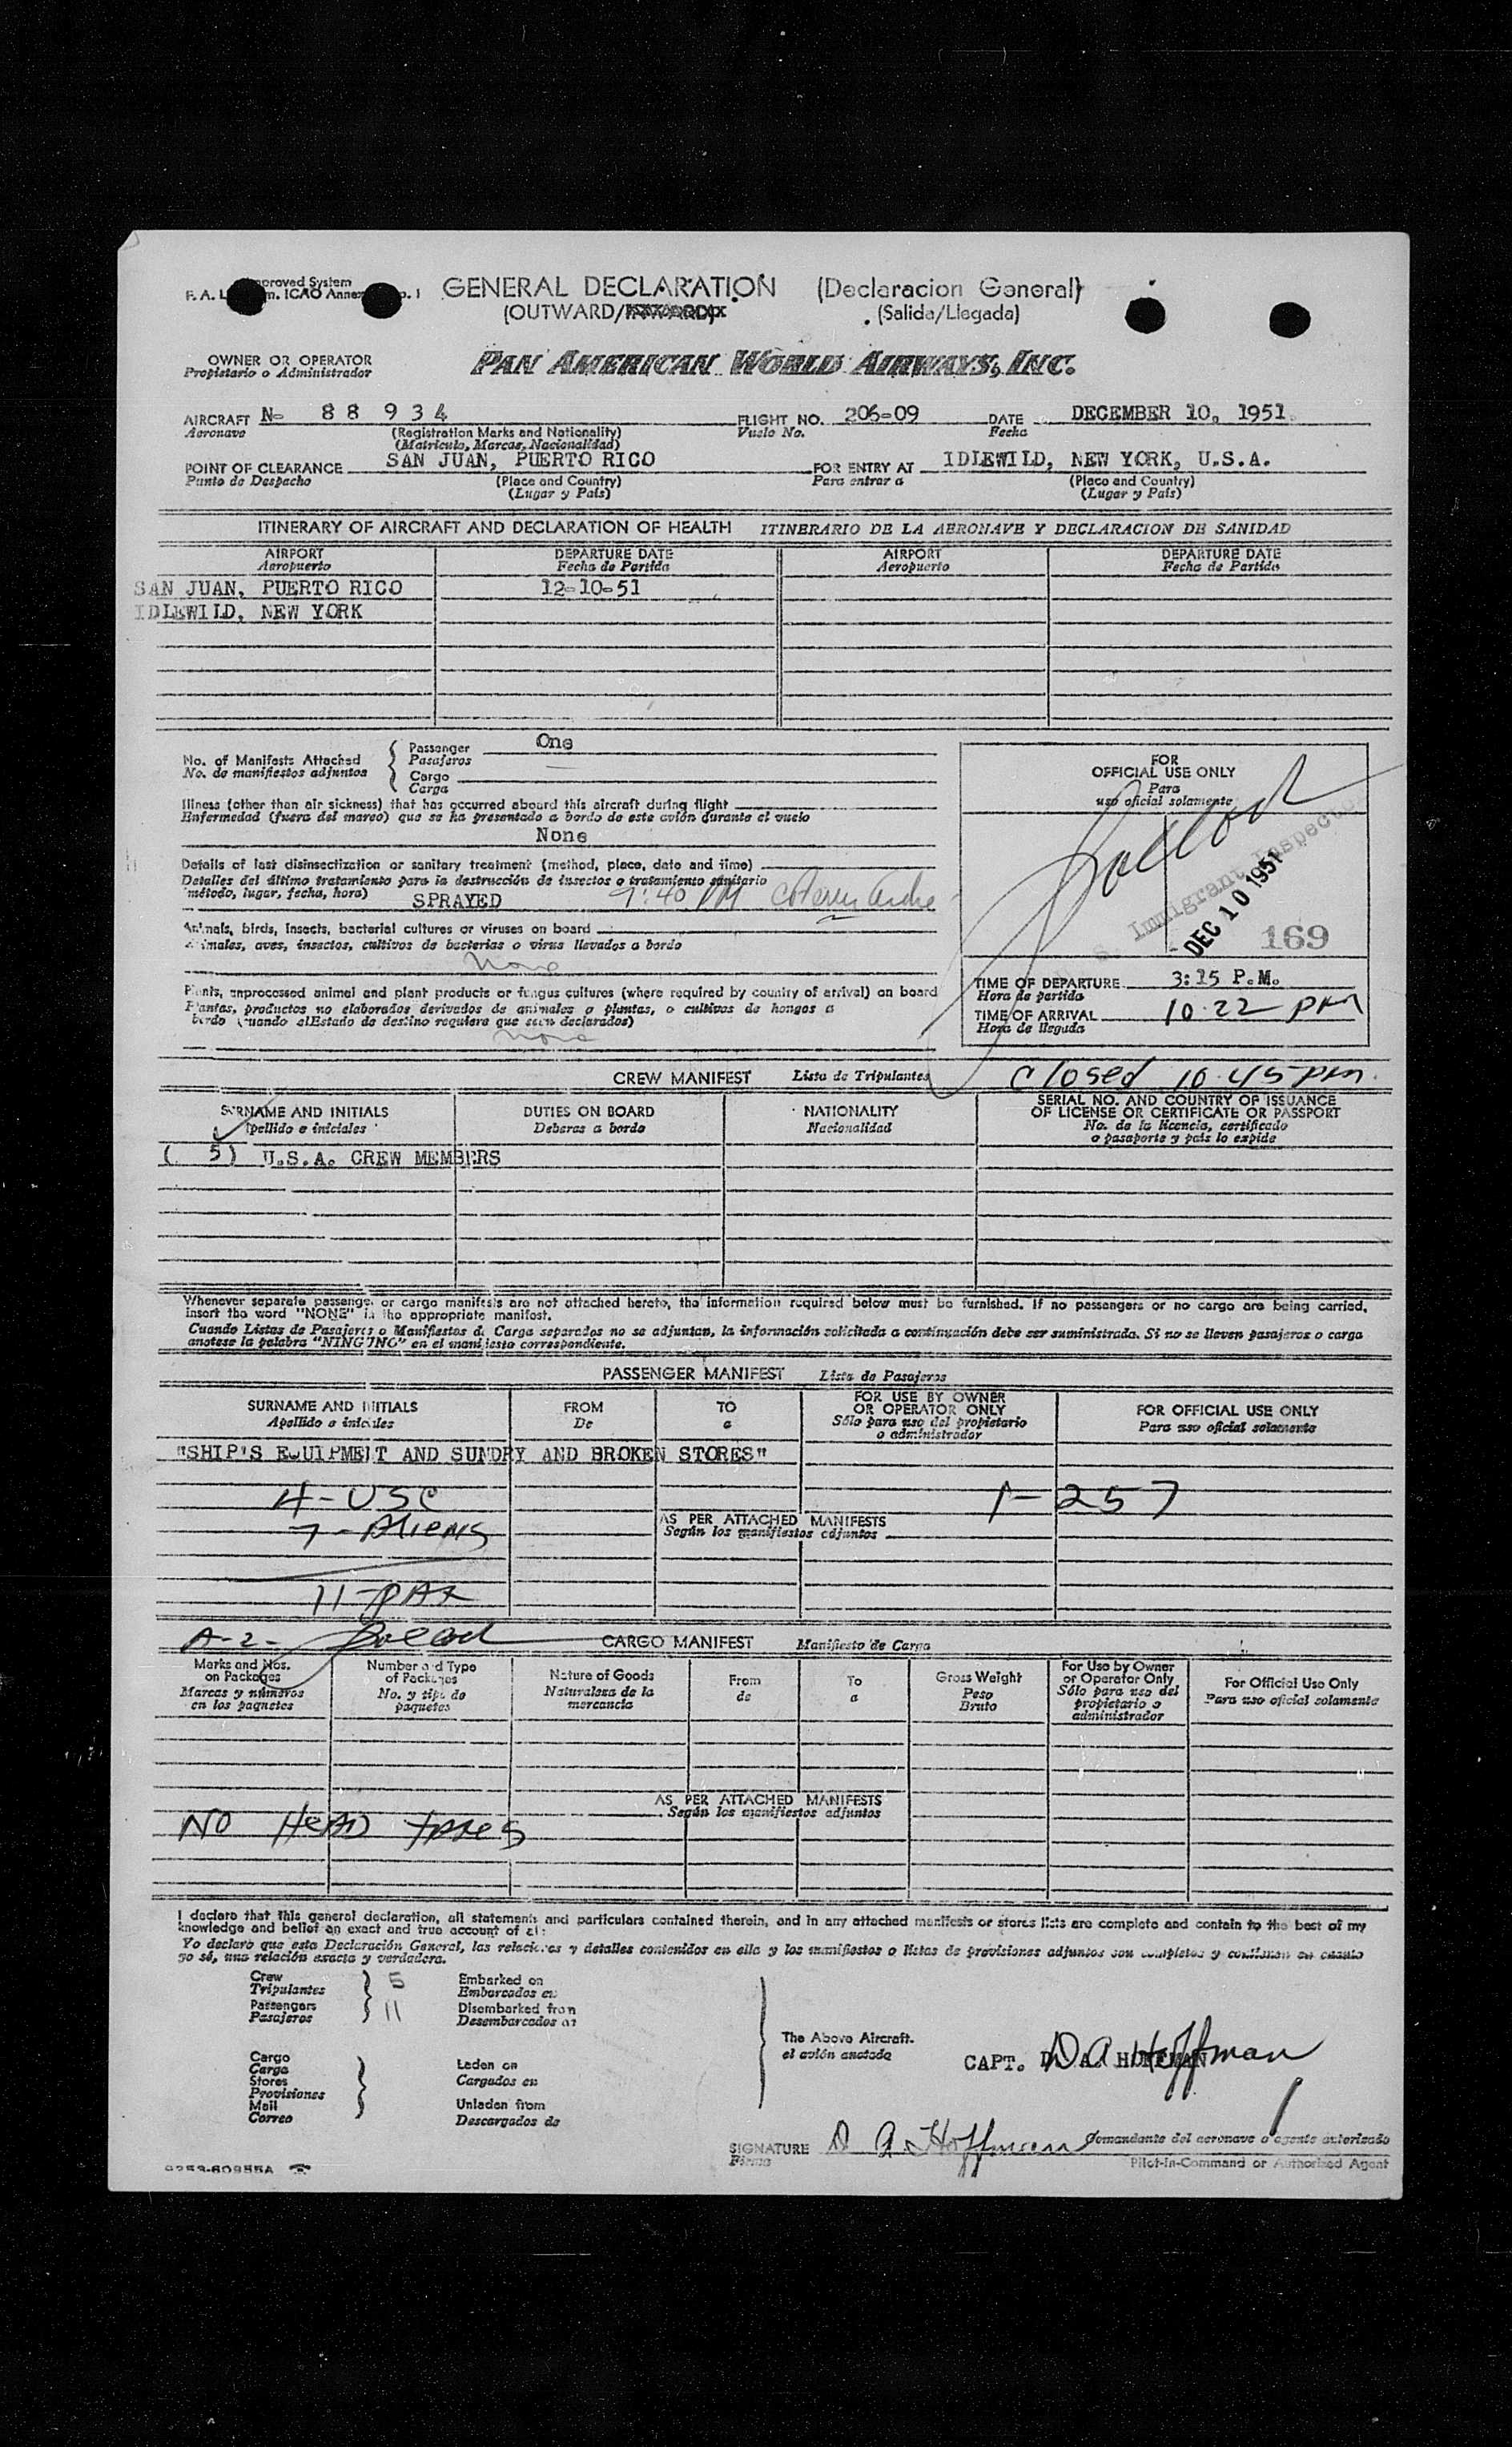 GENERAL DECLARATION (Declaracion General)
(OUTWARD/
(Salida/Llegada)
OWNER OR OPERATOR
Propietario o Administrador
PAN AMERICAN WORLD AIRWAYS, INC.
AIRCRAFT N- 88934 FLIGHT NO. 206-09 DATE DECEMBER 10, 1951
Aeronave (Registration Marks and Nationality) Vuelo No. Fecha
(Matricula, Marcas, Nacionalidad)
POINT OF CLEARANCE SAN JUAN, PUERTO RICO FOR ENTRY AT IDLEWILD, NEW YORK, U.S.A.
Punto de Despacho (Place and Country) Para entrar a (Place and Country)
(Lugar y País) (Lugar y País)
ITINERARY OF AIRCRAFT AND DECLARATION OF HEALTH ITINERARIO DE LA AERONAVE Y DECLARACION DE SANIDAD
AIRPORT DEPARTURE DATE AIRPORT DEPARTURE DATE
Aeropuerto Fecha de Partida Aeropuerto Fecha de Partida
SAN JUAN, PUERTO RICO 12-10-51
IDLEWILD, NEW YORK
No. of Manifests Attached
No. de manifiestos adjuntos
Passenger One
Pasajeros
Cargo
Carga
Illness (other than air sickness) that has occurred aboard this aircraft during flight
Enfermedad (fuera del mareo) que se ha presentado a bordo de este avión durante el vuelo
None
Details of last disinsectization or sanitary treatment (method, place, date and time)
Detalles del último tratamiento para la destrucción de insectos o tratamiento sanitario
método, lugar, fecha, hora) SPRAYED 9:40 PM
Animals, birds, insects, bacterial cultures or viruses on board
Animales, aves, insectos, cultivos de bacterias o virus llevados a bordo
None
Plants, unprocessed animal and plant products or fungus cultures (where required by country of arrival) on board
Plantas, productos no elaborados derivados de animales o plantas, o cultivos de hongos a
bordo (cuando el Estado de destino requiera que sean declarados)
none
FOR
OFFICIAL USE ONLY
Para
uso oficial solamente
Immigrant Inspector
DEC 10 1951
169
TIME OF DEPARTURE 3:15 P.M.
Hora de partida
TIME OF ARRIVAL 10:22 PM
Hora de llegada
closed 10:45 pm
CREW MANIFEST Lista de Tripulantes
SURNAME AND INITIALS DUTIES ON BOARD NATIONALITY SERIAL NO. AND COUNTRY OF ISSUANCE
OF LICENSE OR CERTIFICATE OR PASSPORT
Apellido e iniciales Deberas a bordo Nacionalidad No. de la licencia, certificado
o pasaporte y país lo expide
( 5) U.S.A. CREW MEMBERS
Whenever separate passenger or cargo manifests are not attached hereto, the information required below must be furnished. If no passengers or no cargo are being carried,
insert the word "NONE" in the appropriate manifest.
Cuando Listas de Pasajeros o Manifiestos de Carga separados no se adjuntan, la información solicitada a continuación debe ser suministrada. Si no se lleven pasajeros o carga
anotese la palabra "NINGUNO" en el manifiesto correspondiente.
PASSENGER MANIFEST Lista de Pasajeros
SURNAME AND INITIALS FROM TO FOR USE BY OWNER
OR OPERATOR ONLY FOR OFFICIAL USE ONLY
Apellido e iniciales De a Sólo para uso del propietario
o administrador Para uso oficial solamente
"SHIP'S EQUIPMENT AND SUNDRY AND BROKEN STORES"
4-USC
1-257
7-Aliens
AS PER ATTACHED MANIFESTS
Según los manifiestos adjuntos
11-PAX
A-2-
CARGO MANIFEST Manifiesto de Carga
Marks and Nos.
on Packages
Marcas y números
en los paquetes
Number and Type
of Packages
No. y tipo de
paquetes
Nature of Goods
Naturaleza de la
mercancia
From
de
To
a
Gross Weight
Peso
Bruto
For Use by Owner
or Operator Only
Sólo para uso del
propietario o
administrador
For Official Use Only
Para uso oficial solamente
AS PER ATTACHED MANIFESTS
Según los manifiestos adjuntos
NO HEAD TAXES
I declare that this general declaration, all statements and particulars contained therein, and in any attached manifests or stores lists are complete and contain to the best of my
knowledge and belief an exact and true account of all:
Yo declaro que esta Declaración General, las relaciones y detalles contenidos en ella y los manifiestos o listas de provisiones adjuntos son completos y contienen en cuanto
yo sé, una relación exacta y verdadera.
Crew 5 Embarked on
Tripulantes Embarcados en
Passengers 11 Disembarked from
Pasajeros Desembarcados
The Above Aircraft.
el avión anotado
CAPT. D. A. HOFFMAN
D A Hoffman
Cargo
Carga
Laden on
Stores
Cargados en
Provisiones
Mail
Unladen from
Correo
Descargados de
SIGNATURE D A Hoffman Comandante del aeronave o agente autorizado
Firma Pilot-in-Command or Authorized Agent